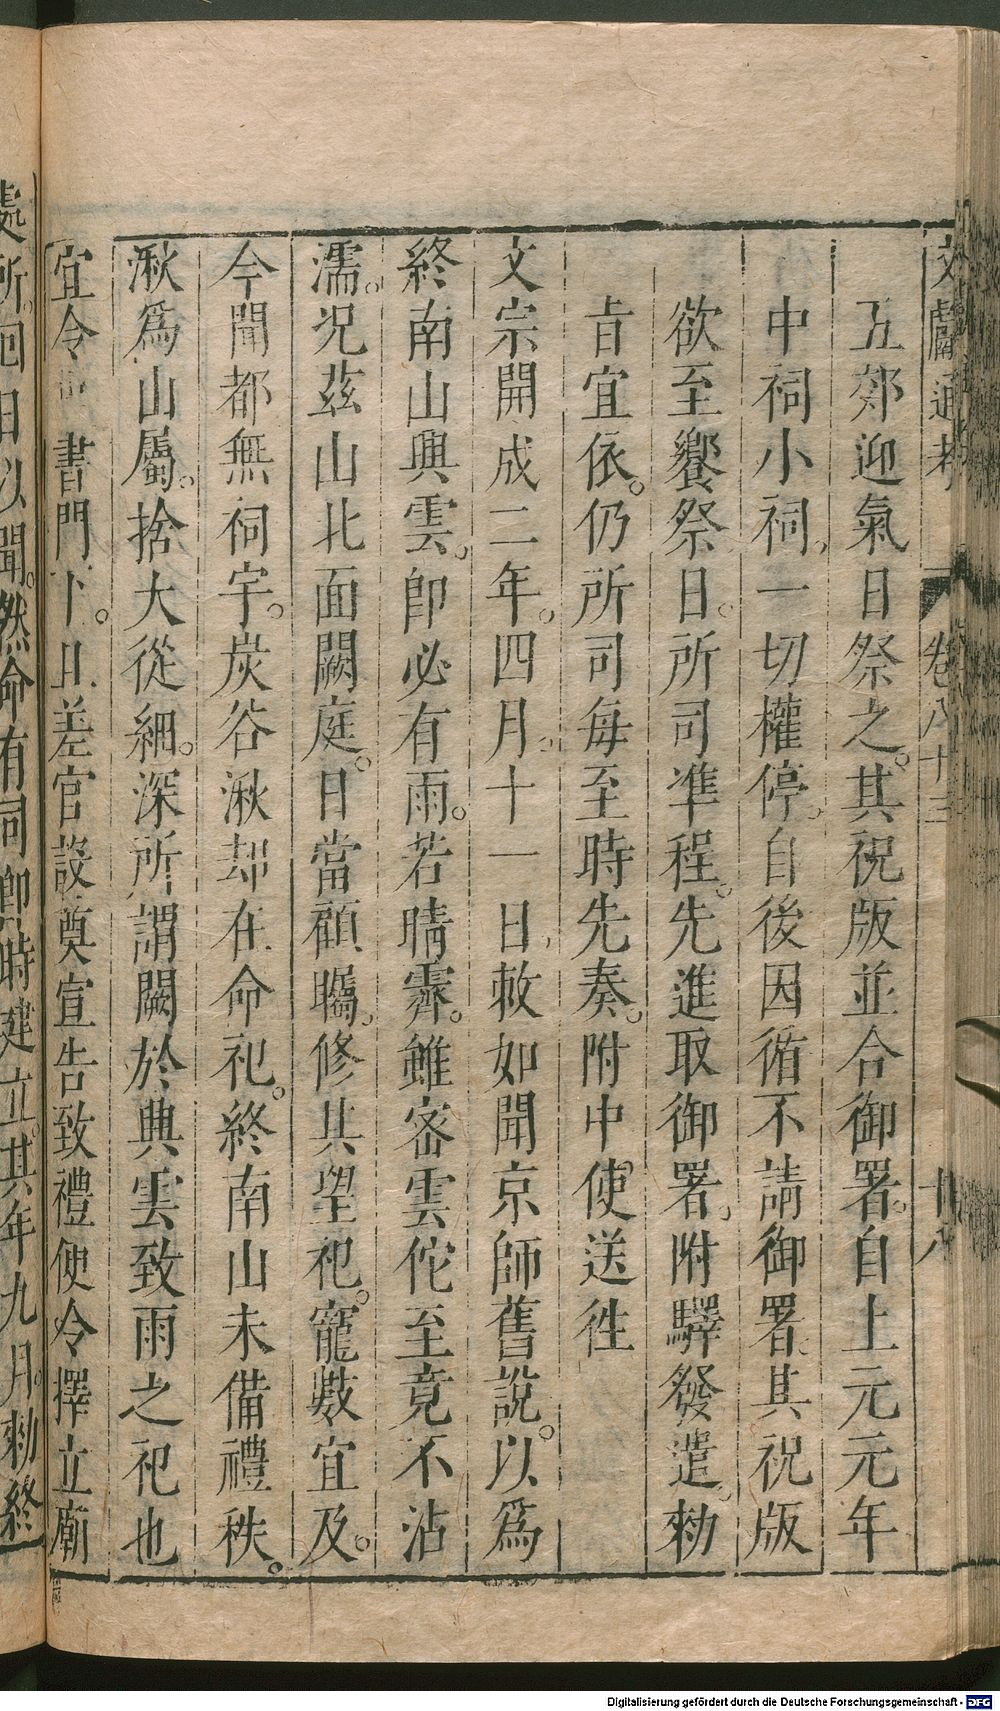 文獻通考 卷八十三 十八
五郊迎氣日祭之。其祝版並合御署。自上元元年
中祠小祠，一切權停。自後因循不請御署。其祝版
欲至饗祭日。所司準程。先進取御署，附驛發遣。勑
旨宜依。仍所司每至時先奏。附中使送徃
文宗開成二年。四月。十一日，敕如聞京師舊說。以爲
終南山興雲。卽必有雨。若晴霽。雖密雲佗至竟不沾
濡。况茲山北面闕庭。日當顧矚。修其望祀。寵數宜及。
今聞都無祠宇。炭谷湫却在命祀。終南山未備禮秩。
湫爲山屬。捨大從細。深所謂闕於興雲致雨之祀也
宜令 書門下。且差官設奠宣告致禮便令擇立廟
處所。回日以聞。然命有司卽時建立。其年九月。勑終
Digitalisierung gefördert durch die Deutsche Forschungsgemeinschaft - DFG